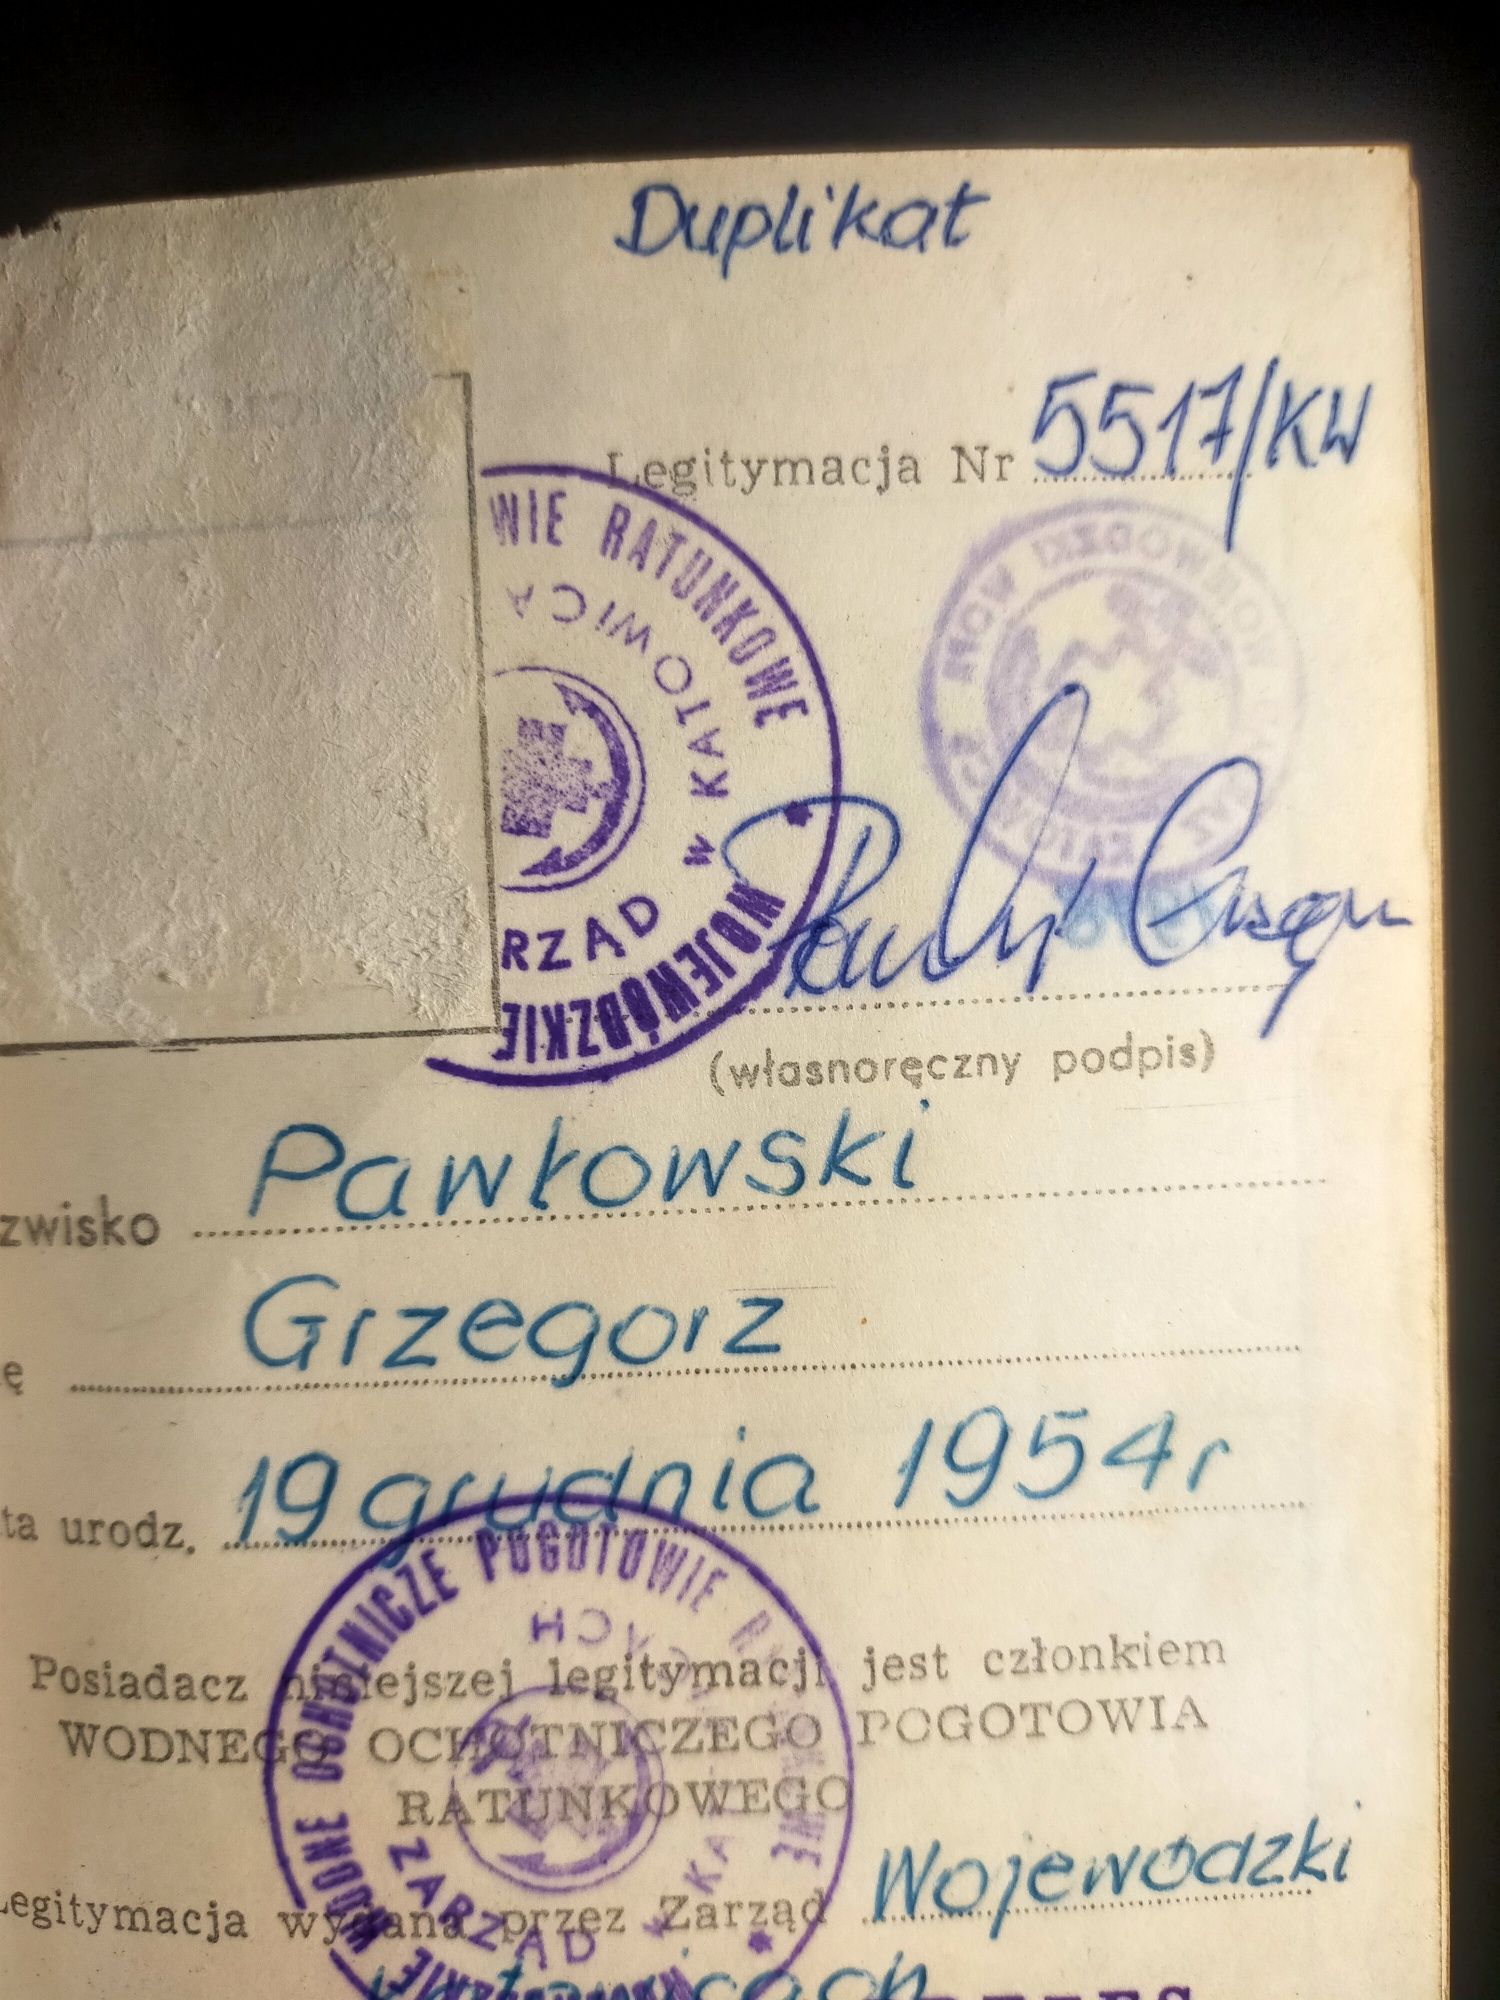 Duplikat
Legitymacja Nr 5517/KW
WIE RATUNKOWE
WOJEWÓDZKIE
RZĄD w KATOWICA
(własnoręczny podpis)
zwisko Pawłowski
ę Grzegorz
ta urodz. 19 grudnia 1954 r
Posiadacz niniejszej legitymacji jest członkiem
WODNEGO OCHOTNICZEGO POGOTOWIA
RATUNKOWEGO
WODNE OCHOTNICZE POGOTOWIE
ZARZĄD
Legitymacja wydana przez Zarząd Wojewódzki